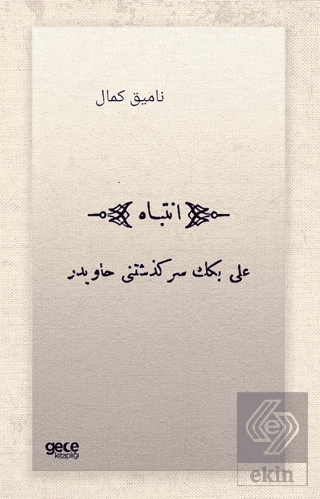 نامیق کمال
انتباه
علی بكك سرکذشتنی حاویدر
gece
kitaplığı
e
ekin